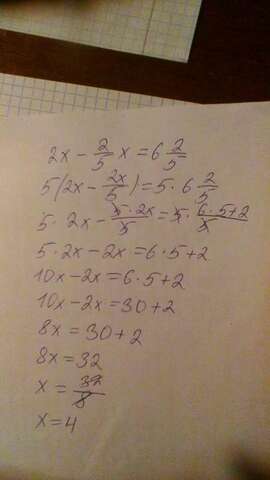 2x - 2/5 x = 6 2/5
5(2x - 2x/5) = 5 · 6 2/5
5 · 2x - 5·2x/5 = 5 · 6·5+2/5
5·2x-2x=6·5+2
10x-2x=6·5+2
10x-2x=30+2
8x=30+2
8x=32
x=32/8
x=4